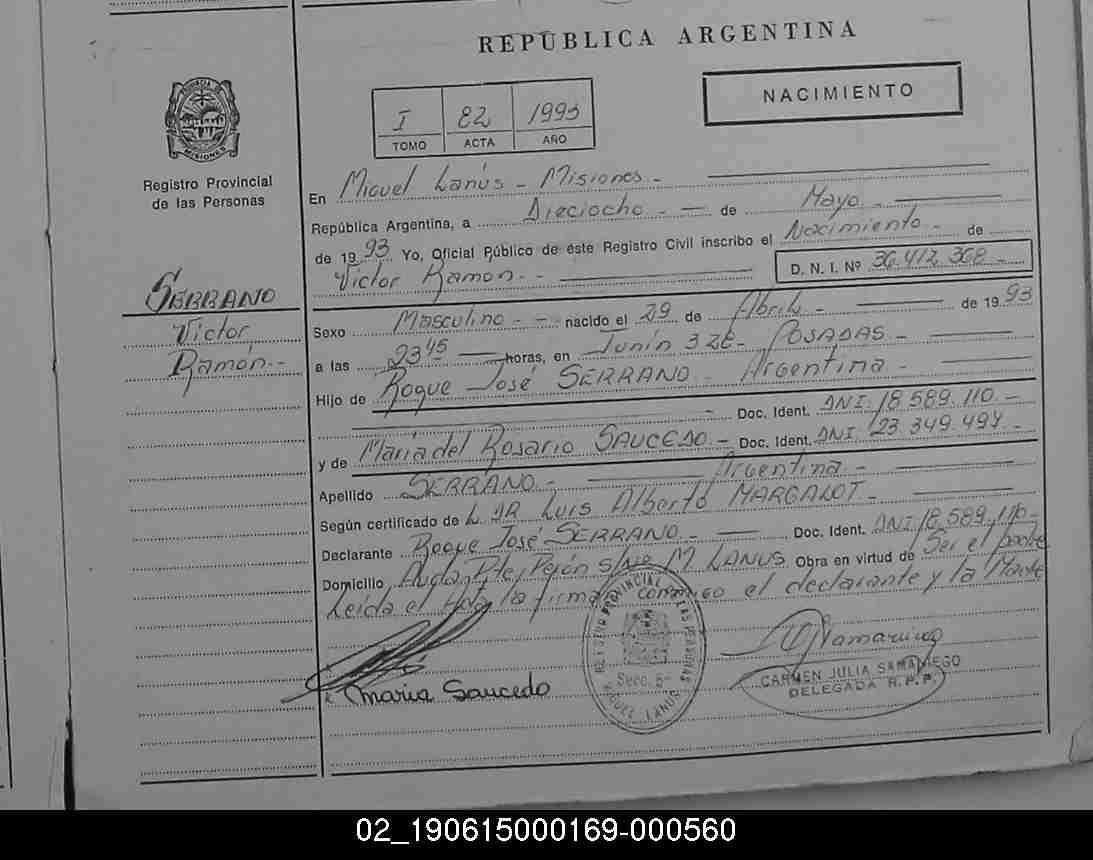 REPÚBLICA ARGENTINA
NACIMIENTO
I 82 1993
TOMO ACTA AÑO
PROVINCIA DE MISIONES
Registro Provincial
de las Personas
SERRANO
Victor
Ramón.-
En Miguel Lanús - Misiones -
República Argentina, a Dieciocho - - de Mayo -
de 1993 Yo, Oficial Público de éste Registro Civil inscribo el Nacimiento - de
Victor Ramon - - D. N. I. Nº 36.412.368 -
Sexo Masculino - - nacido el 29 de Abril - de 1993
a las 23 45 horas, en Junín 328 - POSADAS -
Hijo de Roque José SERRANO - Argentina -
- Doc. Ident. DNI. 18.589.110 -
y de Maria del Rosario SAUCEDO - Doc. Ident. DNI. 23.349.494 -
Argentina -
Apellido SERRANO -
Según certificado de L. DR Luis Alberto MARGALOT -
Declarante Roque José SERRANO - Doc. Ident. DNI 18.589.110 -
Domicilio Avda. Pte. Perón S/Nº M. LANUS Obra en virtud de Ser el padre
Leida el Acta la firma conmigo el declarante y la Madre
maria Saucedo
REGISTRO PROVINCIAL DE LAS PERSONAS
Secc. 5ª
MIGUEL LANUS
CARMEN JULIA SAMANIEGO
DELEGADA R.P.P.
02_190615000169-000560